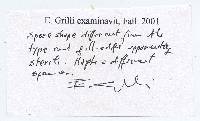 E. Grilli examinavit, Fall 2001
Spore shape different from the
type and gill-edge apparently
sterile. Maybe a different
species.